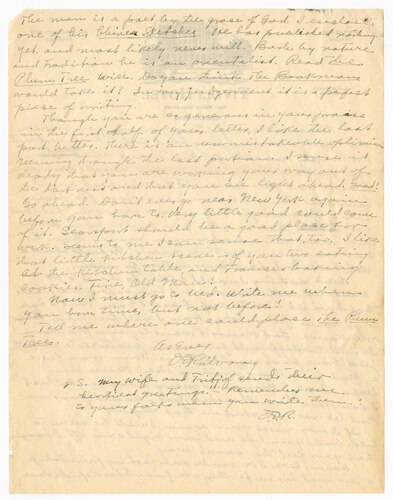 The man is a poet by the grace of God. I enclose
one of his Chinese Sketches. He has published nothing
yet, and most likely never will. Both by nature
and tradition he is an orientalist. Read the
Plum Tree twice. Do you think The Bookman
would take it? In my judgement it is a perfect
piece of writing.
Though you are so generous in your praise
in the first half of your letter, I like the last
part better. There is an unmistakable optimism
running through the last portion. I sense it
clearly that you are working your way out of
the darkness and that you see light ahead. Good!
Go ahead. Don't ever go near New York again
before you have to. Very little good could come
of it. Searsport should be a good place for
work. Seems to me I can sense that, too. I like
that little kitchen scene - of you two eating
at the kitchen table, and Frances baking
cookies. Fine, Old Man!
Now I must go to bed. Write me when
you have time, but not before!
Tell me where one could place The Plum
Tree.
As Ever
P.S. My wife and Fritjof send their
heartiest greetings. Remember me
to your folks when you write them!